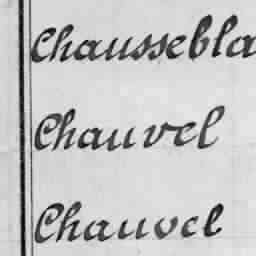 Chaussebla
Chauvel
Chauvel